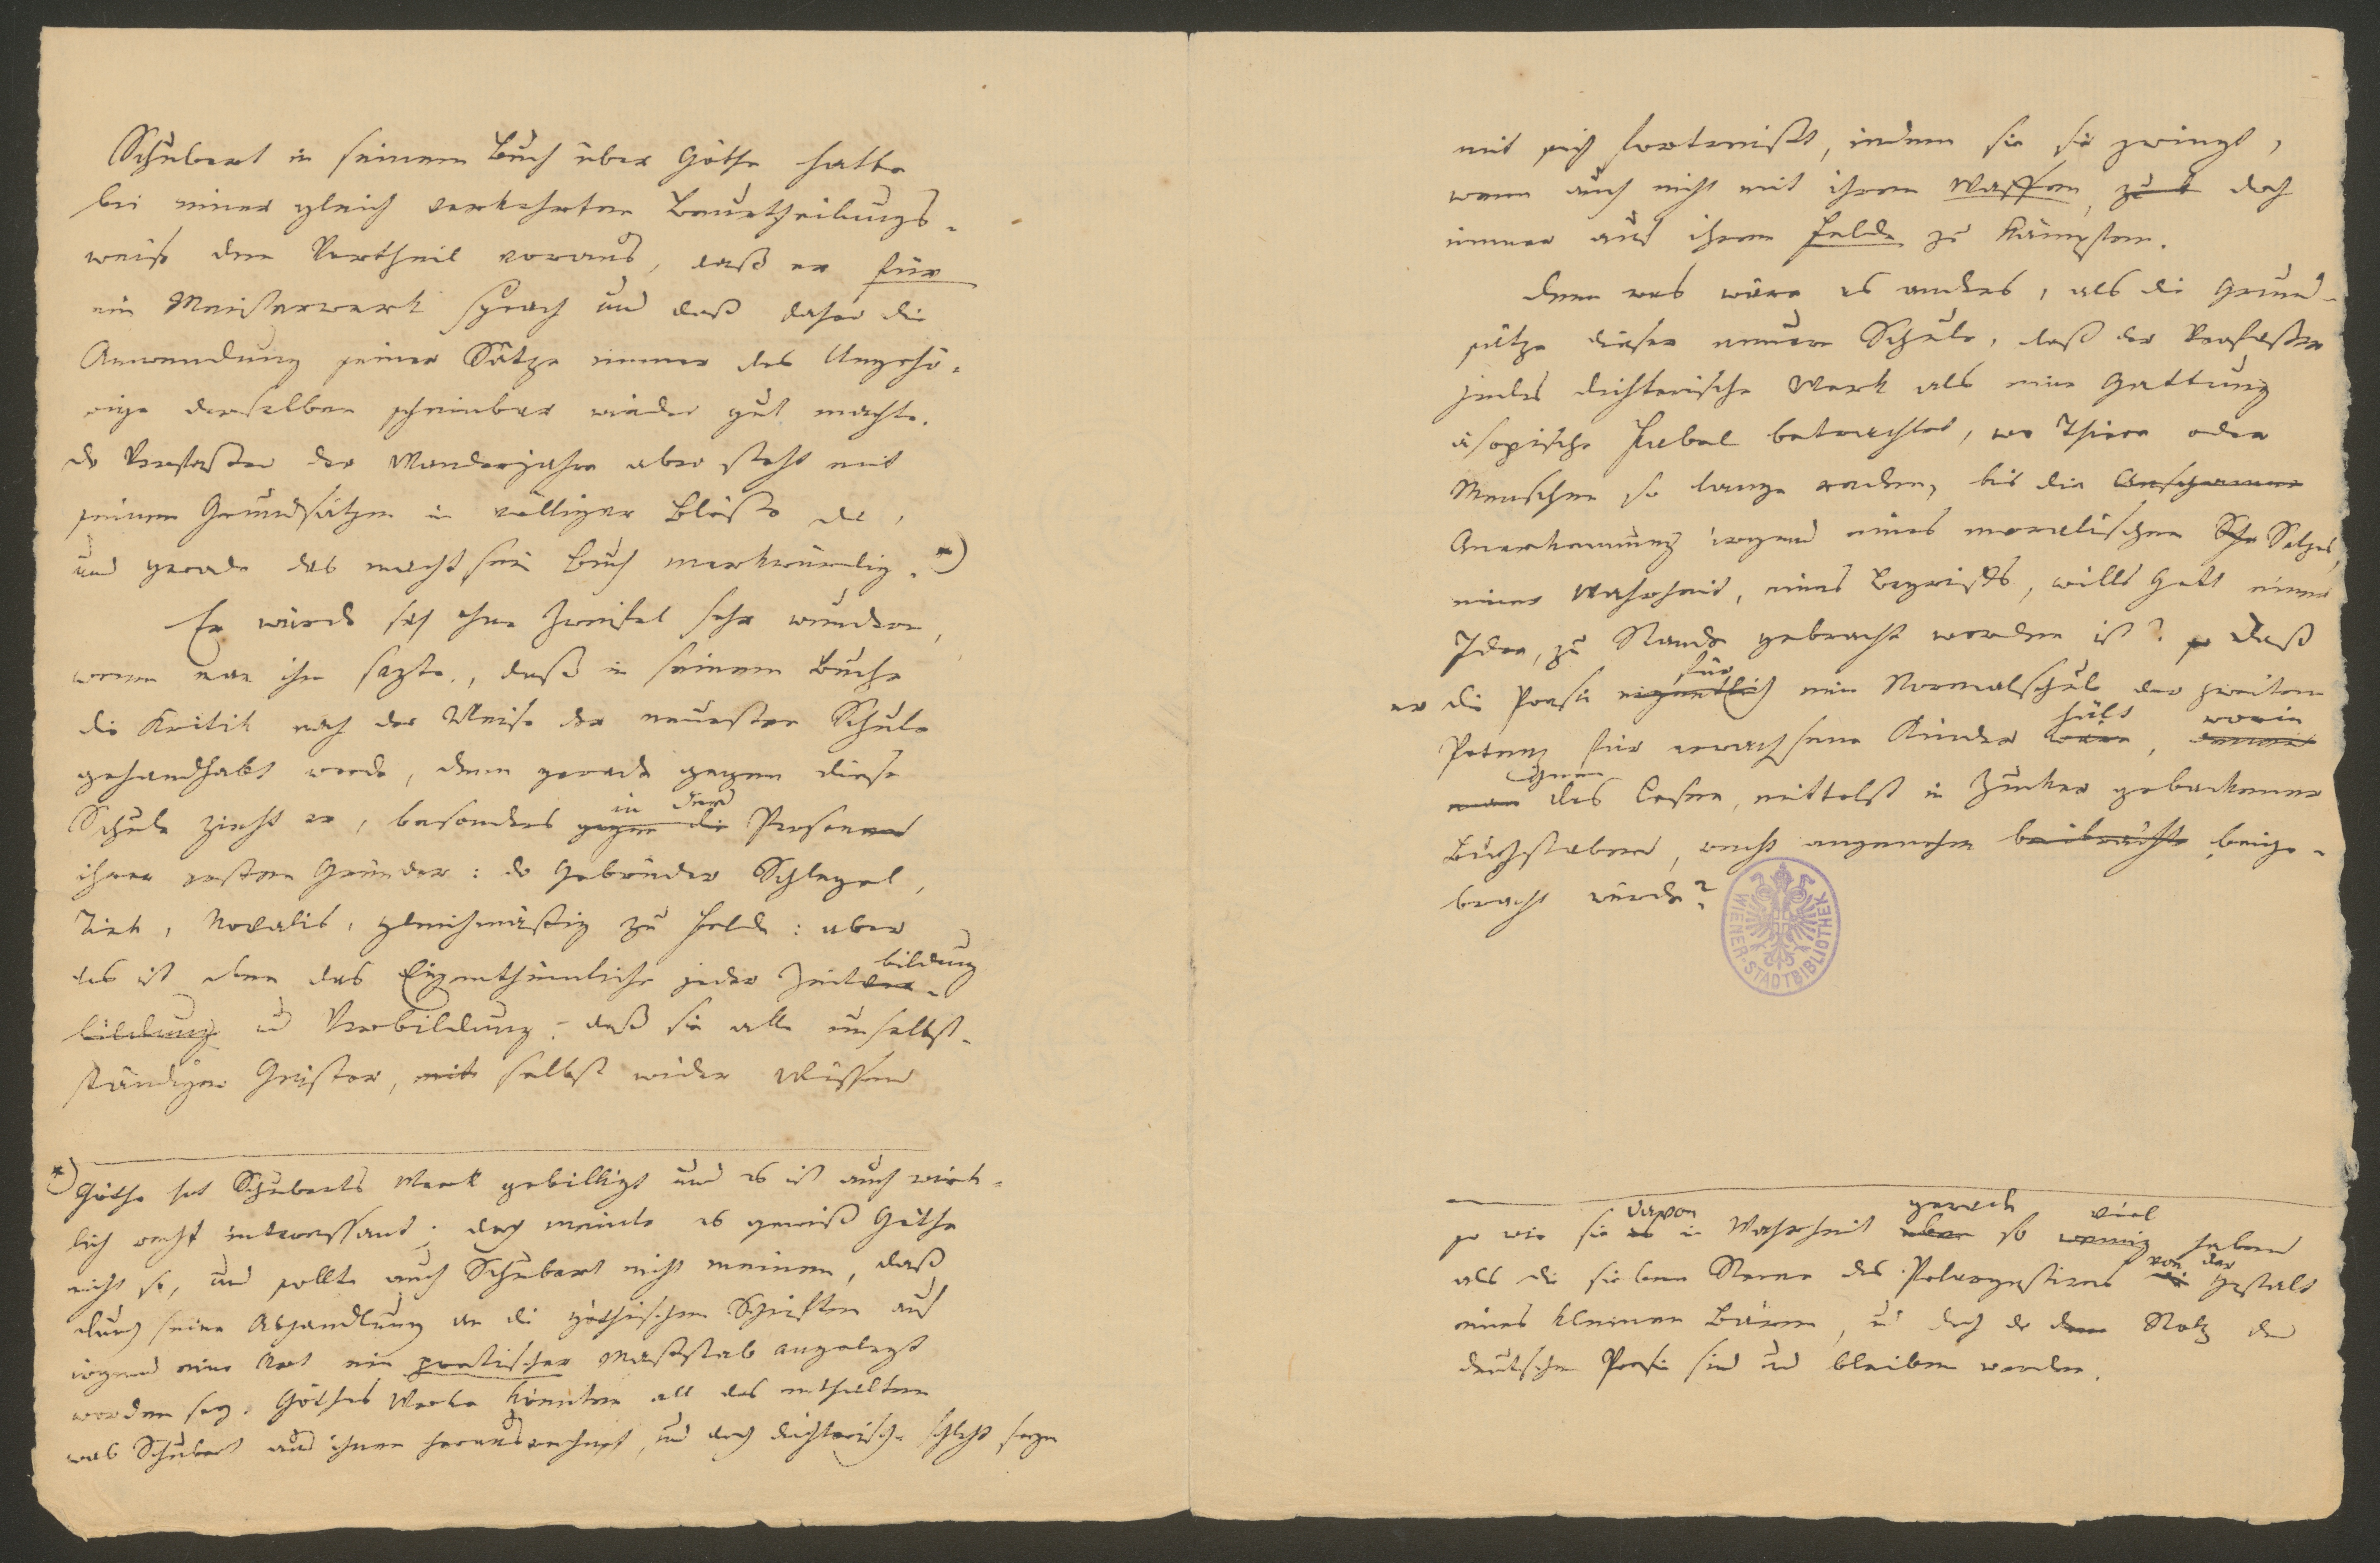 Schubert in seinem Buch über Göthe hatte
bei einer gleich verkehrten Beurtheilungs-
weise den Vortheil voraus, daß er für
ein Meisterwerk sprach und daß daher die
Anwendung seiner Sätze immer das Ungehö-
rige derselben scheinbar wieder gut machte.
Der Verfasser der Wanderjahre aber steht mit
seinen Grundsätzen in völliger Blöße da,
und gerade das macht sein Buch merkwürdig. *)
Er würde sich ohne Zweifel sehr wundern,
wenn man ihm sagte, daß in seinem Buche
die Kritik nach der Weise der neuesten Schule
gehandhabt werde, denn gerade gegen diese
Schule zieht er, besonders gegen die in den Personen
ihrer ersten Gründer: der Gebrüder Schlegel,
Tiek, Novalis, gleichmäßig zu Felde: aber
das ist eben das Eigenthümliche jeder Zeitver- bildung
bildung und Verbildung, daß sie alle unselbst-
ständigen Geister, mit selbst wider Wissen
*) Göthe hat Schubarts Werk gebilligt und es ist auch wirk-
lich recht interessant; doch meinte es gewiß Göthe
nicht so, und sollte auch Schubart nicht meinen, daß
durch seine Abhandlung an die götheischen Schriften auf
irgend eine Art ein poetischer Maßstab angelegt
worden sey. Göthes Werke könnten all das enthalten
was Schubart aus ihnen herausrechnet, und doch dichterisch schlecht seyn
mit sich fortreißt, indem sie sie zwingt,
wenn auch nicht mit ihren Waffen, zu doch
immer auf ihrem Felde zu kämpfen.
Denn was wäre es anders, als die Grund-
sätze dieser neuern Schule, daß der Verfasser
jedes dichterische Werk als eine Gattung
äsopische Fabel betrachtet, wo Thiere oder
Menschen so lange reden, bis die
Anerkennung irgend eines moralischen Satzes,
einer Wahrheit, eines Begriffs, wills Gott einer
Idee, zu Stande gebracht worden ist? so daß
er die Poesie eigentlich für eine Normalschule der zweiten
Potenz für erwachsene Kinder wäre hält, worin
man ihnen das Lesen, mittelst in Zucker gebackener
Buchstaben, recht angenehm beibrächte beige-
bracht würde?
WIENER-STADTBIBLIOTHEK
so wie sie es davon in Wahrheit eben gerade so wenig viel haben
als die sieben Sterne des Polargestirns die von der Gestalt
eines kleinen Bären, und doch der Stolz der
deutschen Poesie sind und bleiben werden.